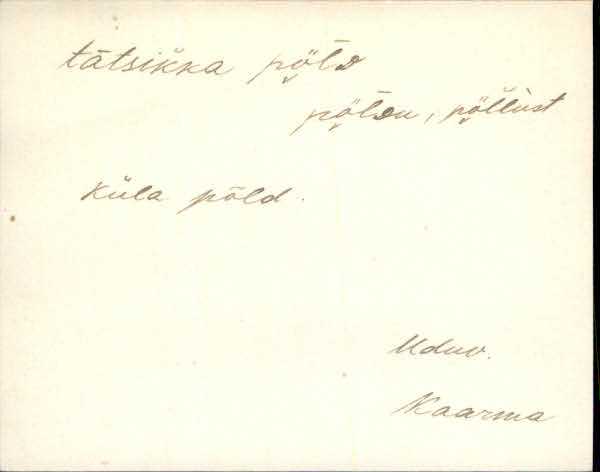 tätsikka pö̬lᴅ
pö̬lᴅu, pö̬llùst
Küla põld.
Uduv.
Kaarma